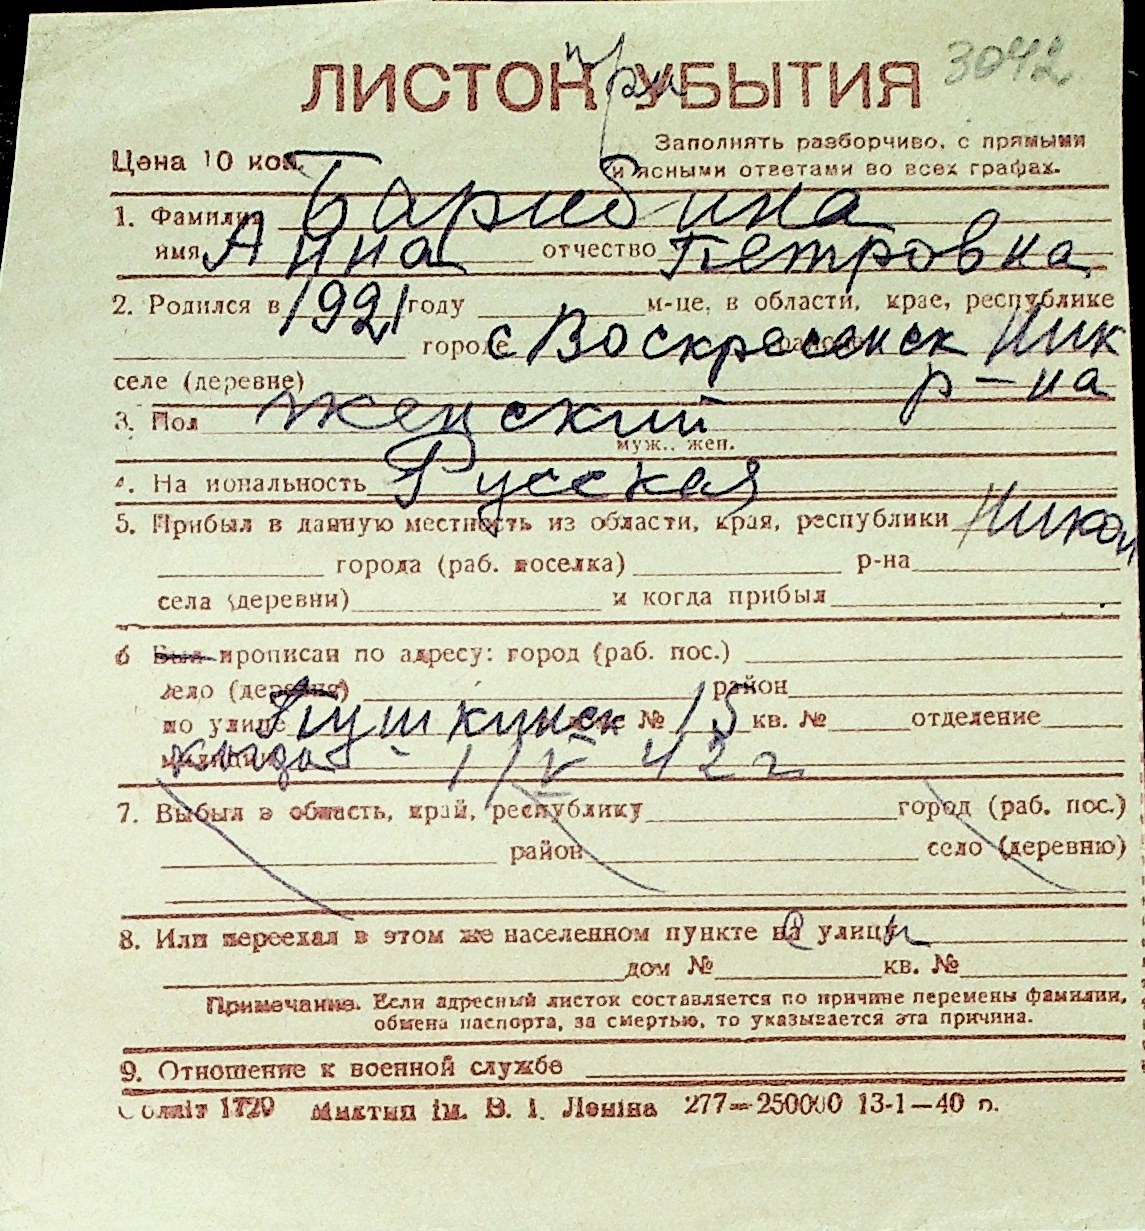 ЛИСТОК УБЫТИЯ
при
3042
Цена 10 коп.
Заполнять разборчиво, с прямыми
и ясными ответами во всех графах.
1. Фамилия Барибина
имя Анна отчество Петровна
2. Родился в 1921 году м-це, в области, крае, республике
городе с Воскресенск Ник
селе (деревне) р-на
3. Пол женский
муж., жен.
4. На иональность Русская
5. Прибыл в данную местность из области, края, республики Никол
города (раб. поселка) р-на
села (деревни) и когда прибыл
6 Был прописан по адресу: город (раб. пос.)
село (деревня) район
по улице Пушкинск № 15 кв. № отделение
когда - 1/V 42 г
7. Выбыл в область, край, республику город (раб. пос.)
район село (деревню)
8. Или переехал в этом же населенном пункте на улицу
дом № кв. №
Примечание. Если адресный листок составляется по причине перемены фамилии,
обмена паспорта, за смертью, то указывается эта причина.
9. Отношение к военной службе
1720 ім. В. І. Леніна 277—250000 13-1—40 п.